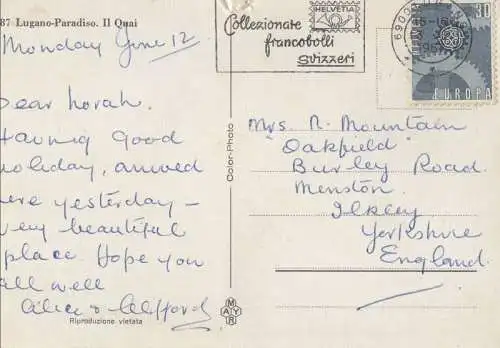 87 Lugano-Paradiso. Il Quai
Monday June 12
Dear Norah.
Having Good
holiday, arrived
here yesterday -
very beautiful
place. Hope you
all well
Alice & Clifford
Riproduzione vietata
Color-Photo
MAYR
HELVETIA
Collezionate
francobolli
svizzeri
6900
30
EUROPA
Mrs. N. Mountain
"Oakfield"
Burley Road.
Menston.
Ilkley
Yorkshire
England.